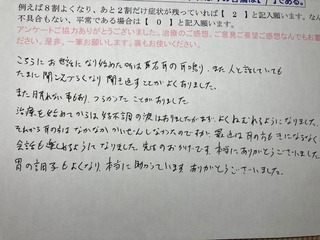 例えば８割がよくなり、あと２割だけ症状が残っていれば【 ２ 】と記入願います。
不具合もない、平常である場合は【 ０ 】と記入願います。
アンケートご協力ありがとうございました。治療のご感想、ご意見ご要望ごさいましたら
ださい。是非、一筆お願いします。裏もお使いください。
こちらにお世話になり始めた時は右耳の耳鳴り、また人と話していても
たまに聞こえづらくなり聞き返すことがよくありました。
また眠れない事もあり、つらかったことがありました。
治療を始めてからは好不調の波はありましたが、よくねむれるようになりました。
それから耳の方はなかなかかいぜんしなかったのですが、最近は耳の方も気にならなく
会話も楽しめるようになりました。先生のおかげです。本当にありがとうございました。
胃の調子もよくなり、本当に助かっています。ありがとうございました。